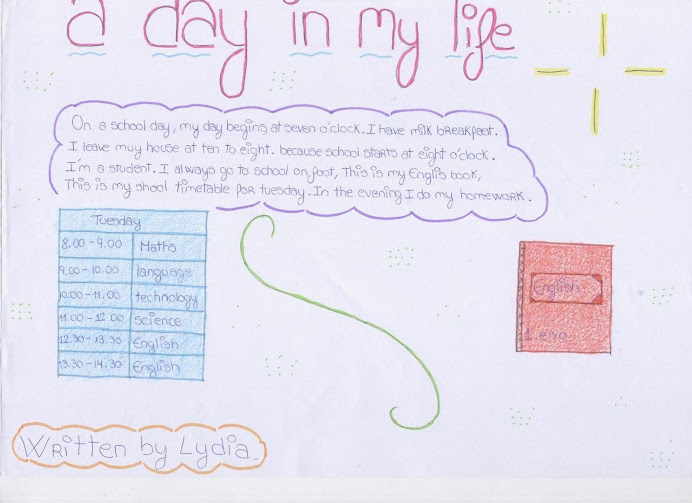 a day in my life
On a school day, my day begins at seven o'clock. I have milk breakfast.
I leave muy house at ten to eight. because school starts at eight o'clock.
I'm a student. I always go to school on foot, This is my Englis book,
This is my shool timetable for tuesday. In the evening I do my homework.
Tuesday
8.00-9.00 Maths
9.00-10.00 language
10.00-11.00 technology
11.00-12.00 science
12.30-13.30 English
13.30-14.30 English
English
1.eso
Written by Lydia.